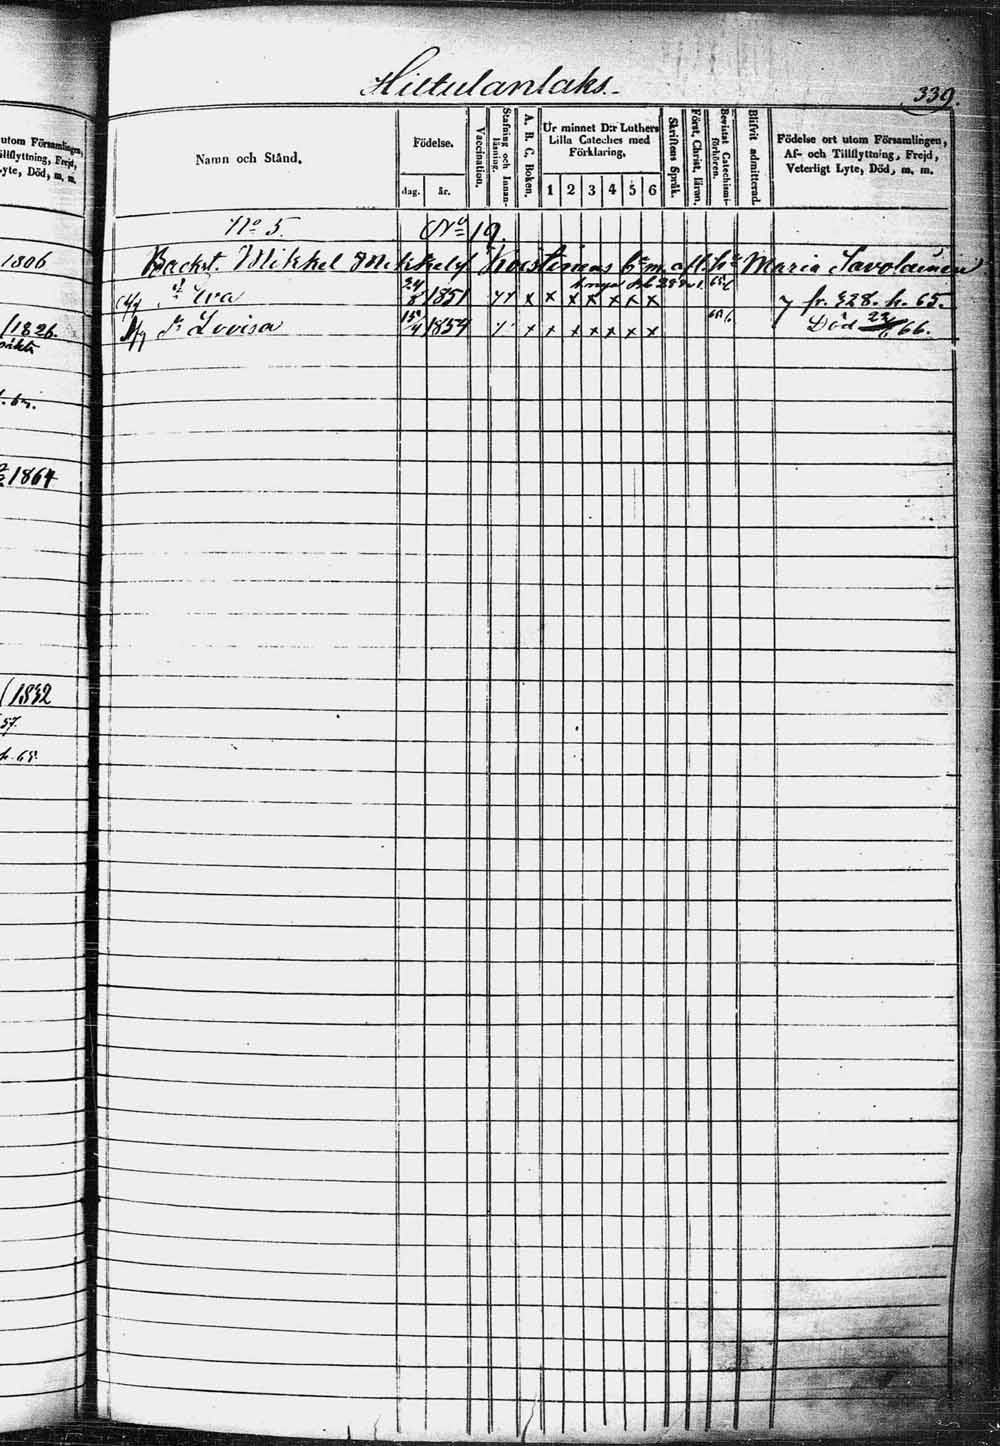 Hiltulanlaks.
339.
utom Församlingen,
Tillflyttning, Frejd,
Lyte, Död, m. m.
1806
1826
1864
1832
57.
h. 65
Namn och Stånd.
Födelse.
dag.
år.
Vaccination.
Stafning och Innanläsning.
A. B. C. Boken.
Ur minnet D:r Luthers
Lilla Cateches med
Förklaring.
1 2 3 4 5 6
Skriftens Språk.
Först. Christ. läran.
Bevistat Catechismiförhören.
Blifvit admitterad.
Födelse ort utom Församlingen,
Af- och Tillflyttning, Frejd,
Veterligt Lyte, Död, m. m.
No 5. No 19.
Backst. Mikkel Mikkelss Koistinens b:a m. afl. h:u Maria Savolainen
d:r Eva 24/8 1851 x x x x x x x 65/6 fr. 328. h. 65.
d:r Lovisa 15/4 1854 x x x x x x x 65/6 Död 23/6 66.